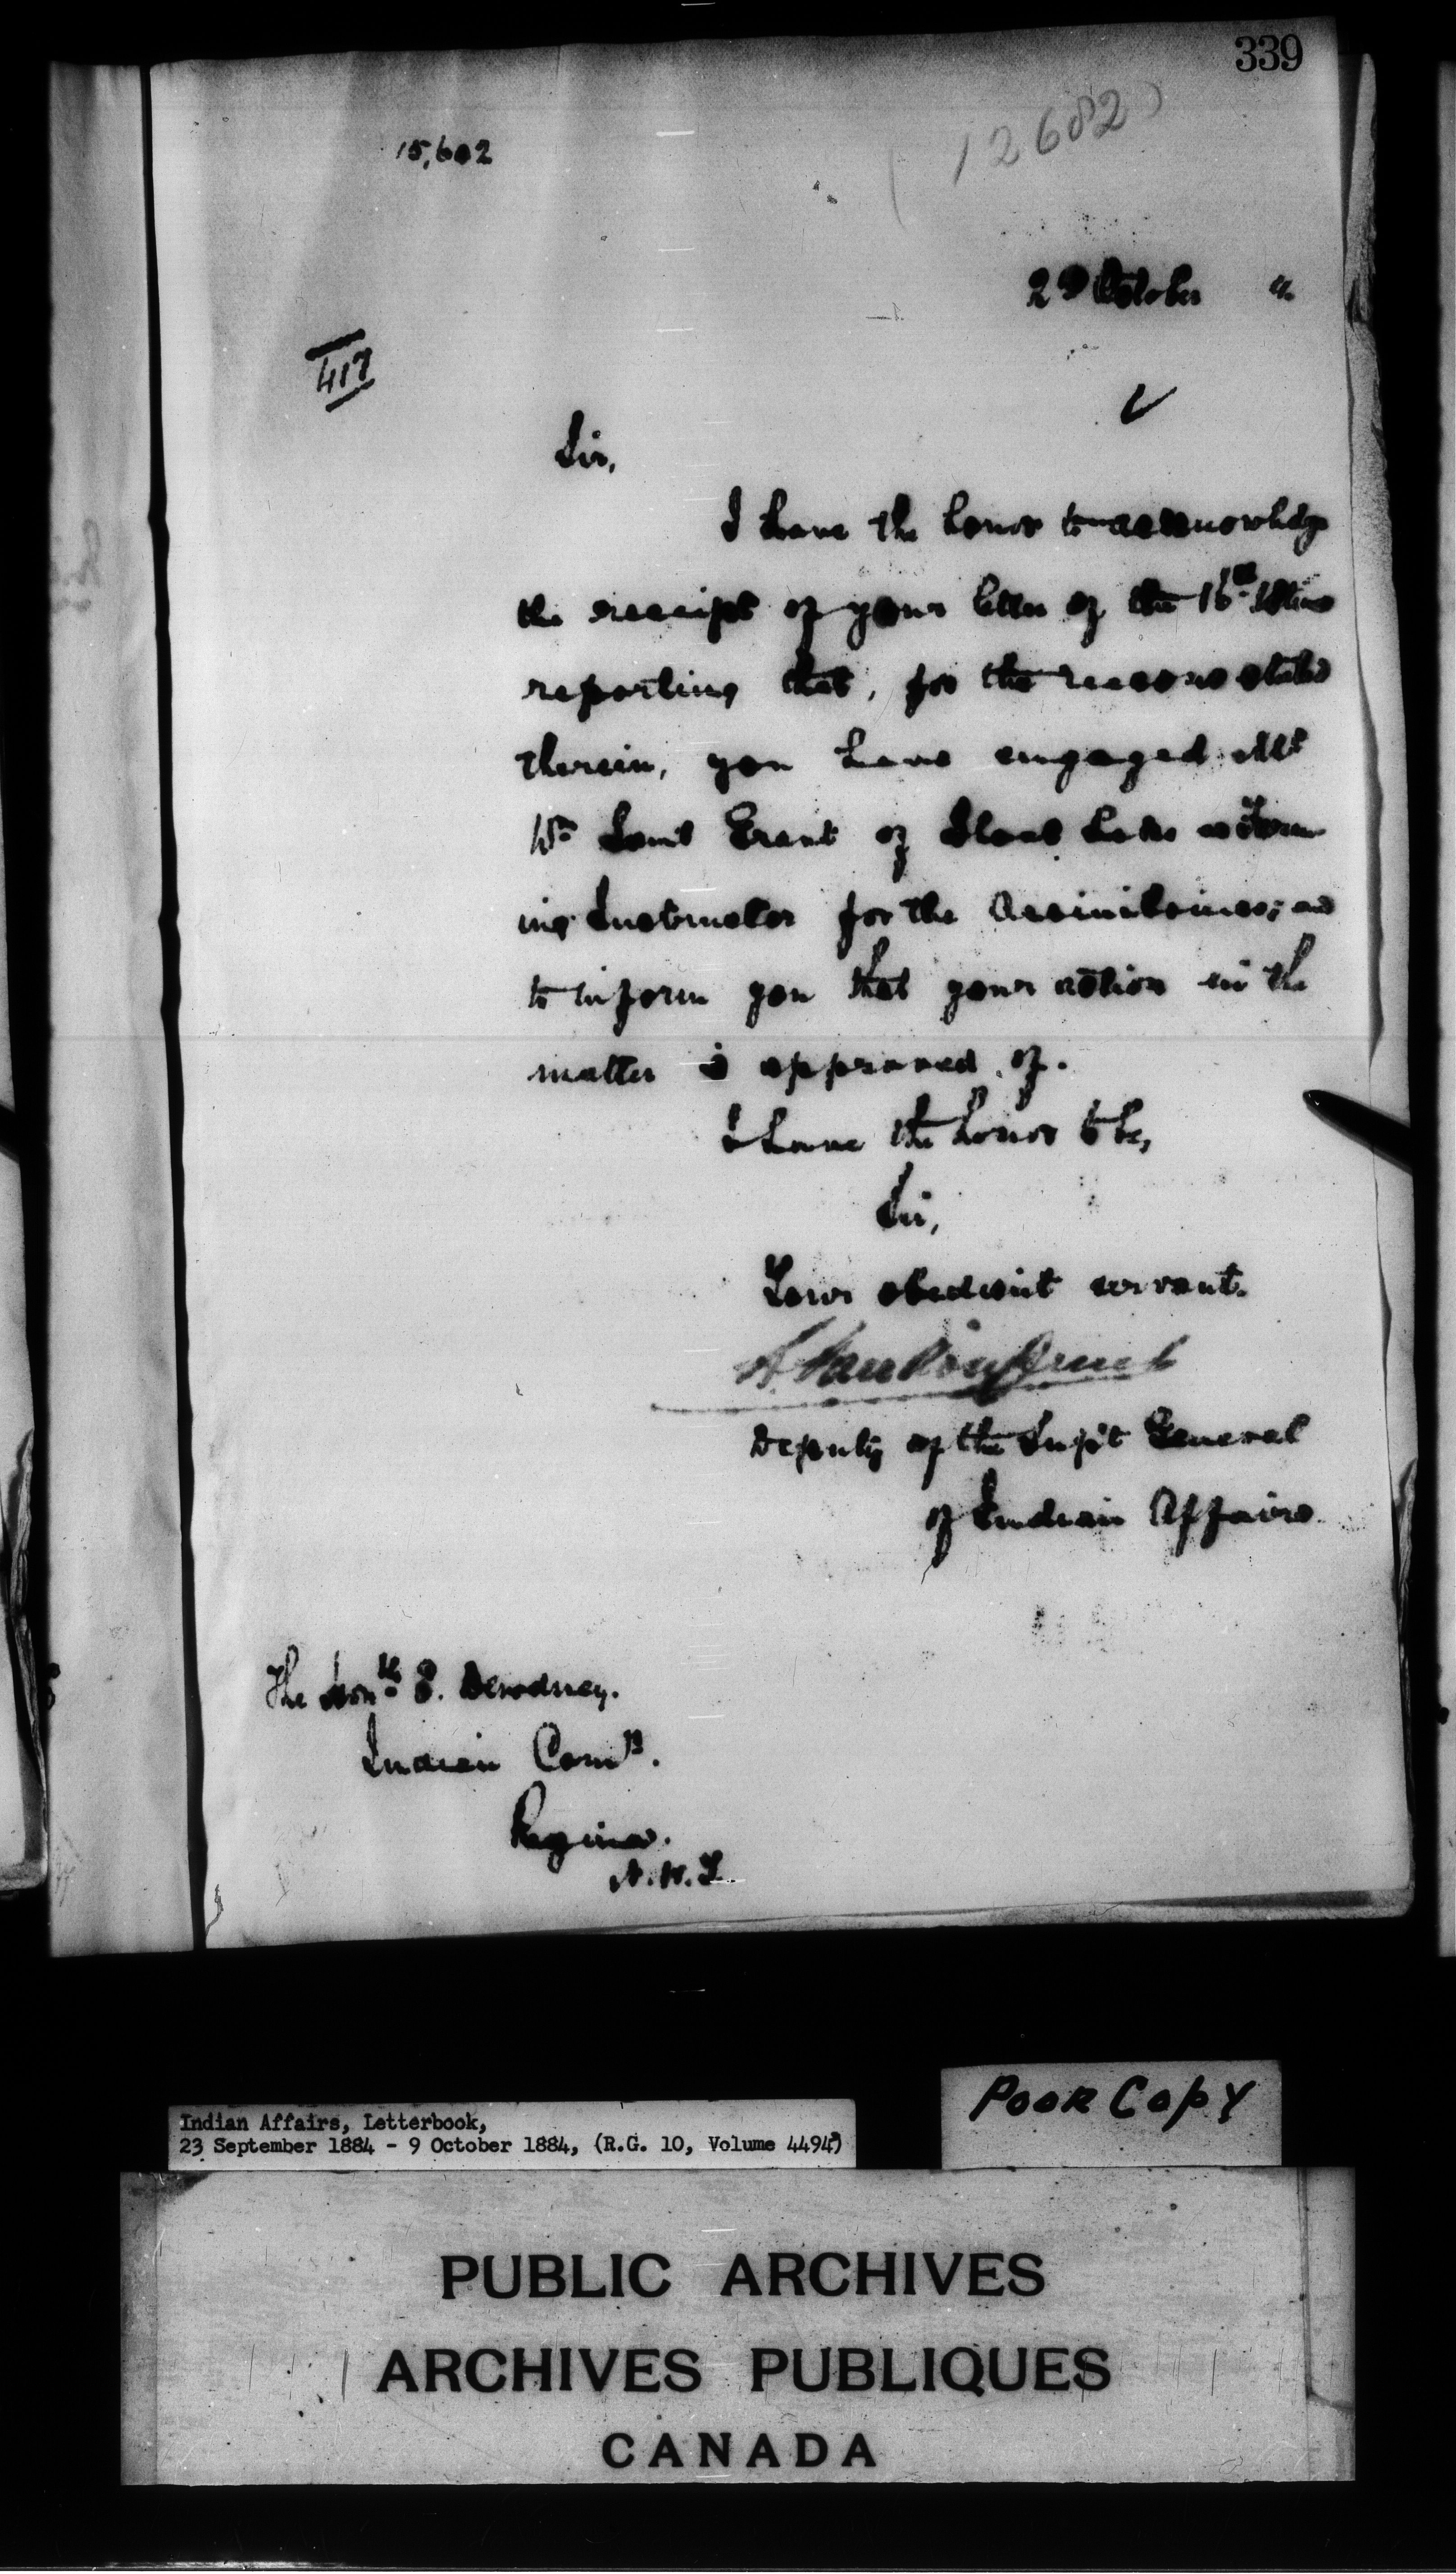 339
15,602
(12682)
2nd October "
417
Sir,
I have the honor to acknowledge
the receipt of your letter of the 16th Ultimo
reporting that, for the reasons stated
therein, you have engaged Mr
Wm Grant of Lake as Farm-
ing Instructor for the Assiniboines; and
to inform you that your action in the
matter is approved of.
I have the honor to be,
Sir,
Your obedient servant.
L. VanKoughnet
Deputy of the Supt General
of Indian Affairs
The Honble E. Dewdney.
Indian Comr.
Regina.
N.W.T.
POOR COPY
Indian Affairs, Letterbook,
23 September 1884 - 9 October 1884, (R.G. 10, Volume 4494)
PUBLIC ARCHIVES
ARCHIVES PUBLIQUES
CANADA